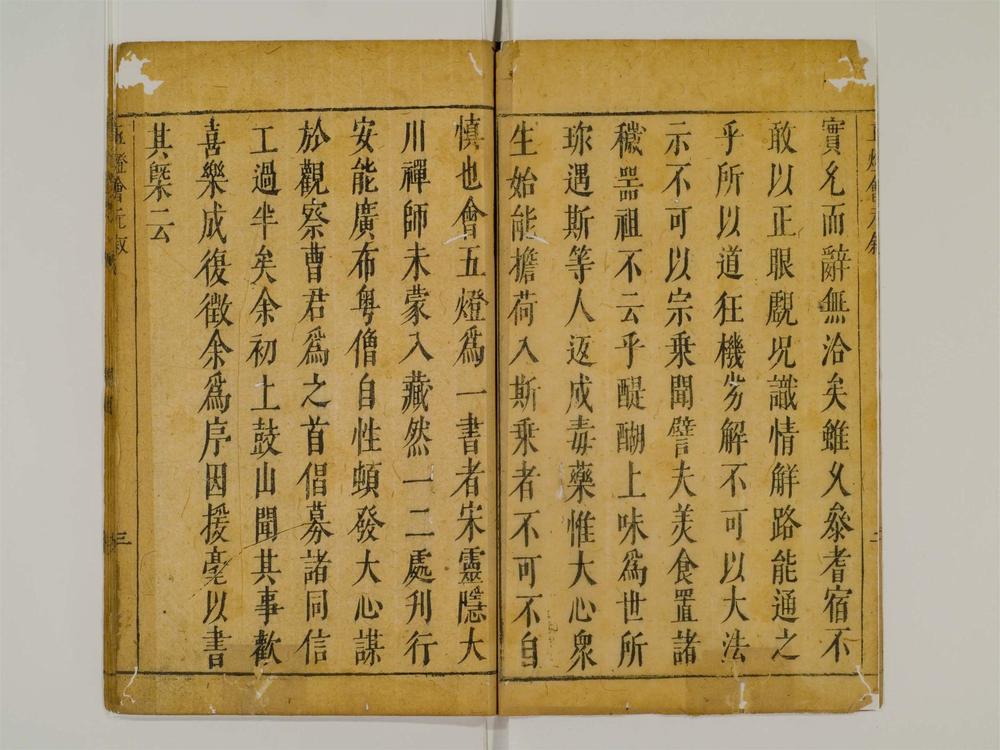 實允而辭無洽矣雖久叅耆宿不
敢以正眼覷況識情解路能通之
乎所以道狂機劣解不可以大法
示不可以宗乗聞譬夫美食置諸
穢噐祖不云乎醍醐上味爲世所
珎遇斯等人返成毒藥惟大心衆
生始能擔荷入斯乗者不可不自
慎也會五燈爲一書者宋靈隱大
川禪師未蒙入藏然一二處刋行
安能廣布粤僧自性頓發大心謀
於觀察曹君爲之首倡募諸同信
工過半矣余初上鼓山聞其事歡
喜樂成復徵余爲序因援毫以書
其槩云
五燈會元敘
三